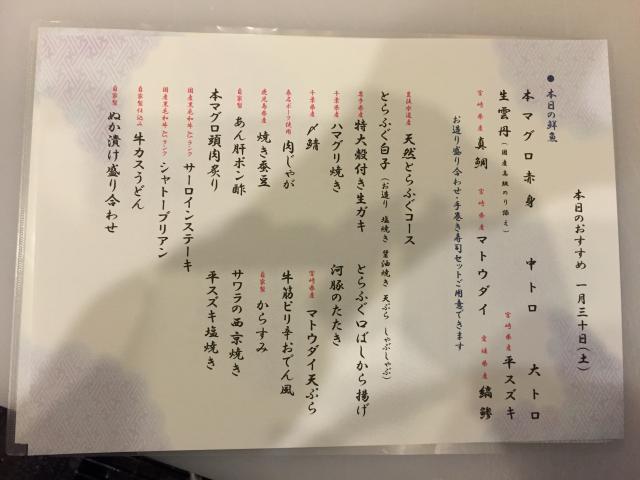 本日のおすすめ 一月三十日(土)
●本日の鮮魚
本マグロ赤身 中トロ 大トロ
生雲丹(国産高級のり添え) 宮崎県産 平スズキ
宮崎県産 真鯛 宮崎県産 マトウダイ 愛媛県産 縞鯵
お造り盛り合わせ・手巻き寿司セットご用意できます
天然とらふぐコース
とらふぐ白子(お造り 塩焼き 醤油焼き 天ぷら しゃぶしゃぶ)
特大殻付き生ガキ とらふぐ口ばしから揚げ
千葉県産 ハマグリ焼き 河豚のたたき
千葉県産 〆鯖 宮崎県産 マトウダイ天ぷら
桑名ポーク使用 肉じゃが 牛筋ピリ辛おでん風
鹿児島県産 焼き蚕豆 自家製 からすみ
自家製 あん肝ポン酢 サワラの西京焼き
本マグロ頭肉炙り 平スズキ塩焼き
国産黒毛和牛 ランク サーロインステーキ
国産黒毛和牛 ランク シャトーブリアン
自家製仕込み 牛カスうどん
自家製 ぬか漬け盛り合わせ